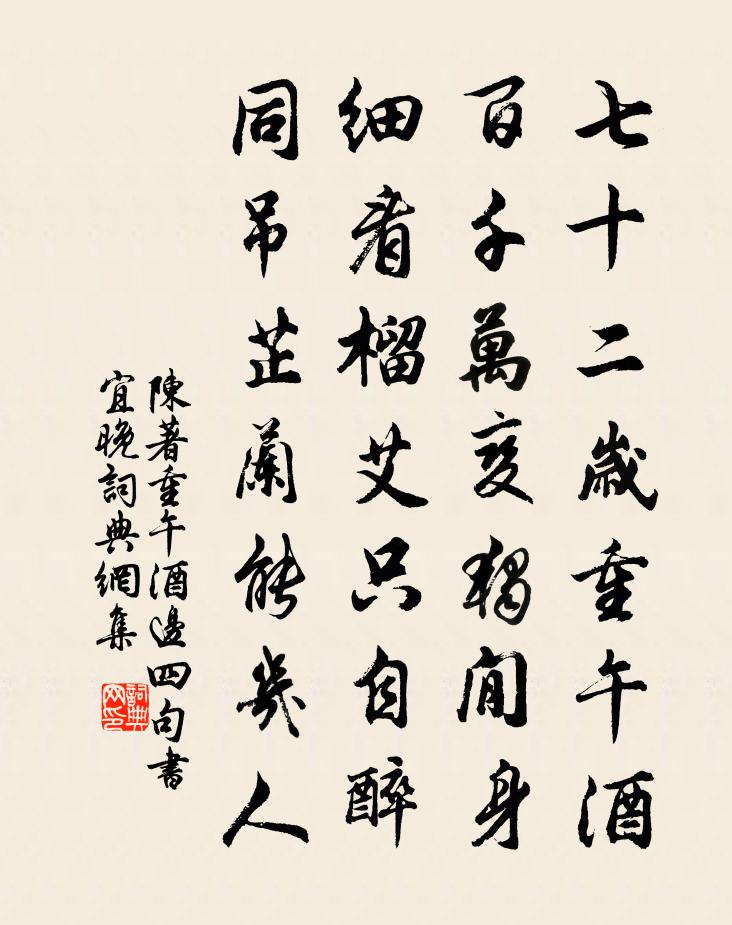 七十二歲重午酒
百千萬變獨閒身
細看榴艾只自醉
同弔芷蘭能幾人
陳著重午酒邊四句書
宜晚詞典網集
詞典网印